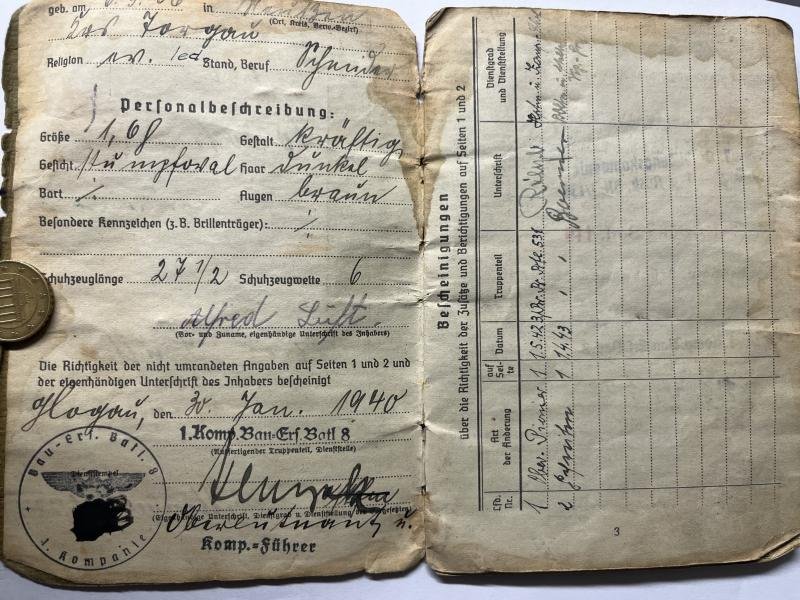 geb. am in
(Ort, Kreis, Verw.-Bezirk)
Krs Torgau
Religion ev. led Stand, Beruf Schneider
Personalbeschreibung:
Größe 1,68 Gestalt kräftig
Gesicht stumpfoval Haar dunkel
Bart ⁒ Augen braun
Besondere Kennzeichen (z.B. Brillenträger): ⁒
Schuhzeuglänge 27 1/2 Schuhzeugweite 6
Alfred Luft
(Vor- und Zuname, eigenhändige Unterschrift des Inhabers)
Die Richtigkeit der nicht umrandeten Angaben auf Seiten 1 und 2 und
der eigenhändigen Unterschrift des Inhabers bescheinigt
Glogau, den 30. Jan. 1940
1. Komp. Bau-Ers. Batl 8
(Ausfertigender Truppenteil, Dienststelle)
Bau-Ers. Batl. 8
Dienststempel
1. Kompanie
(Eigenhändige Unterschrift, Dienstgrad u. Dienststellung des Vorgesetzten)
Oberleutnant u.
Komp.-Führer
Bescheinigungen
über die Richtigkeit der Zusätze und Berichtigungen auf Seiten 1 und 2
Lfd. Nr. Art der Änderung auf Seite Datum Truppenteil Unterschrift Dienstgrad und Dienststellung
1 Ober 1 1.5.42 531
2 1 1.4.43 " "
3